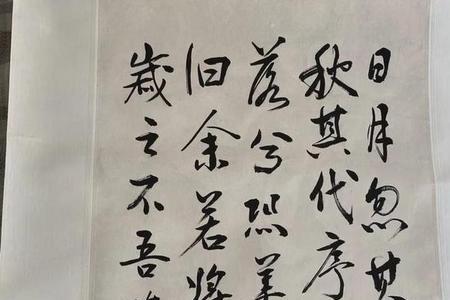 日月忽其
秋其代序
落兮恐美
汩余若将
歲之不吾